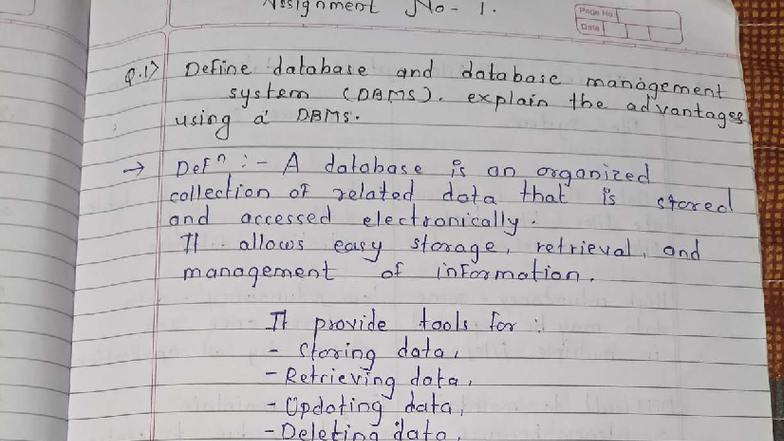 Assignment No - 1.
Page No
Date
Q.1> Define database and database management
system (DBMS). explain the advantages
using a DBMS.
→ Defⁿ :- A database is an organized
collection of related data that is stored
and accessed electronically.
It allows easy storage, retrieval, and
management of information.
It provide tools for :
- Storing data,
- Retrieving data,
- Updating data,
- Deleting data,